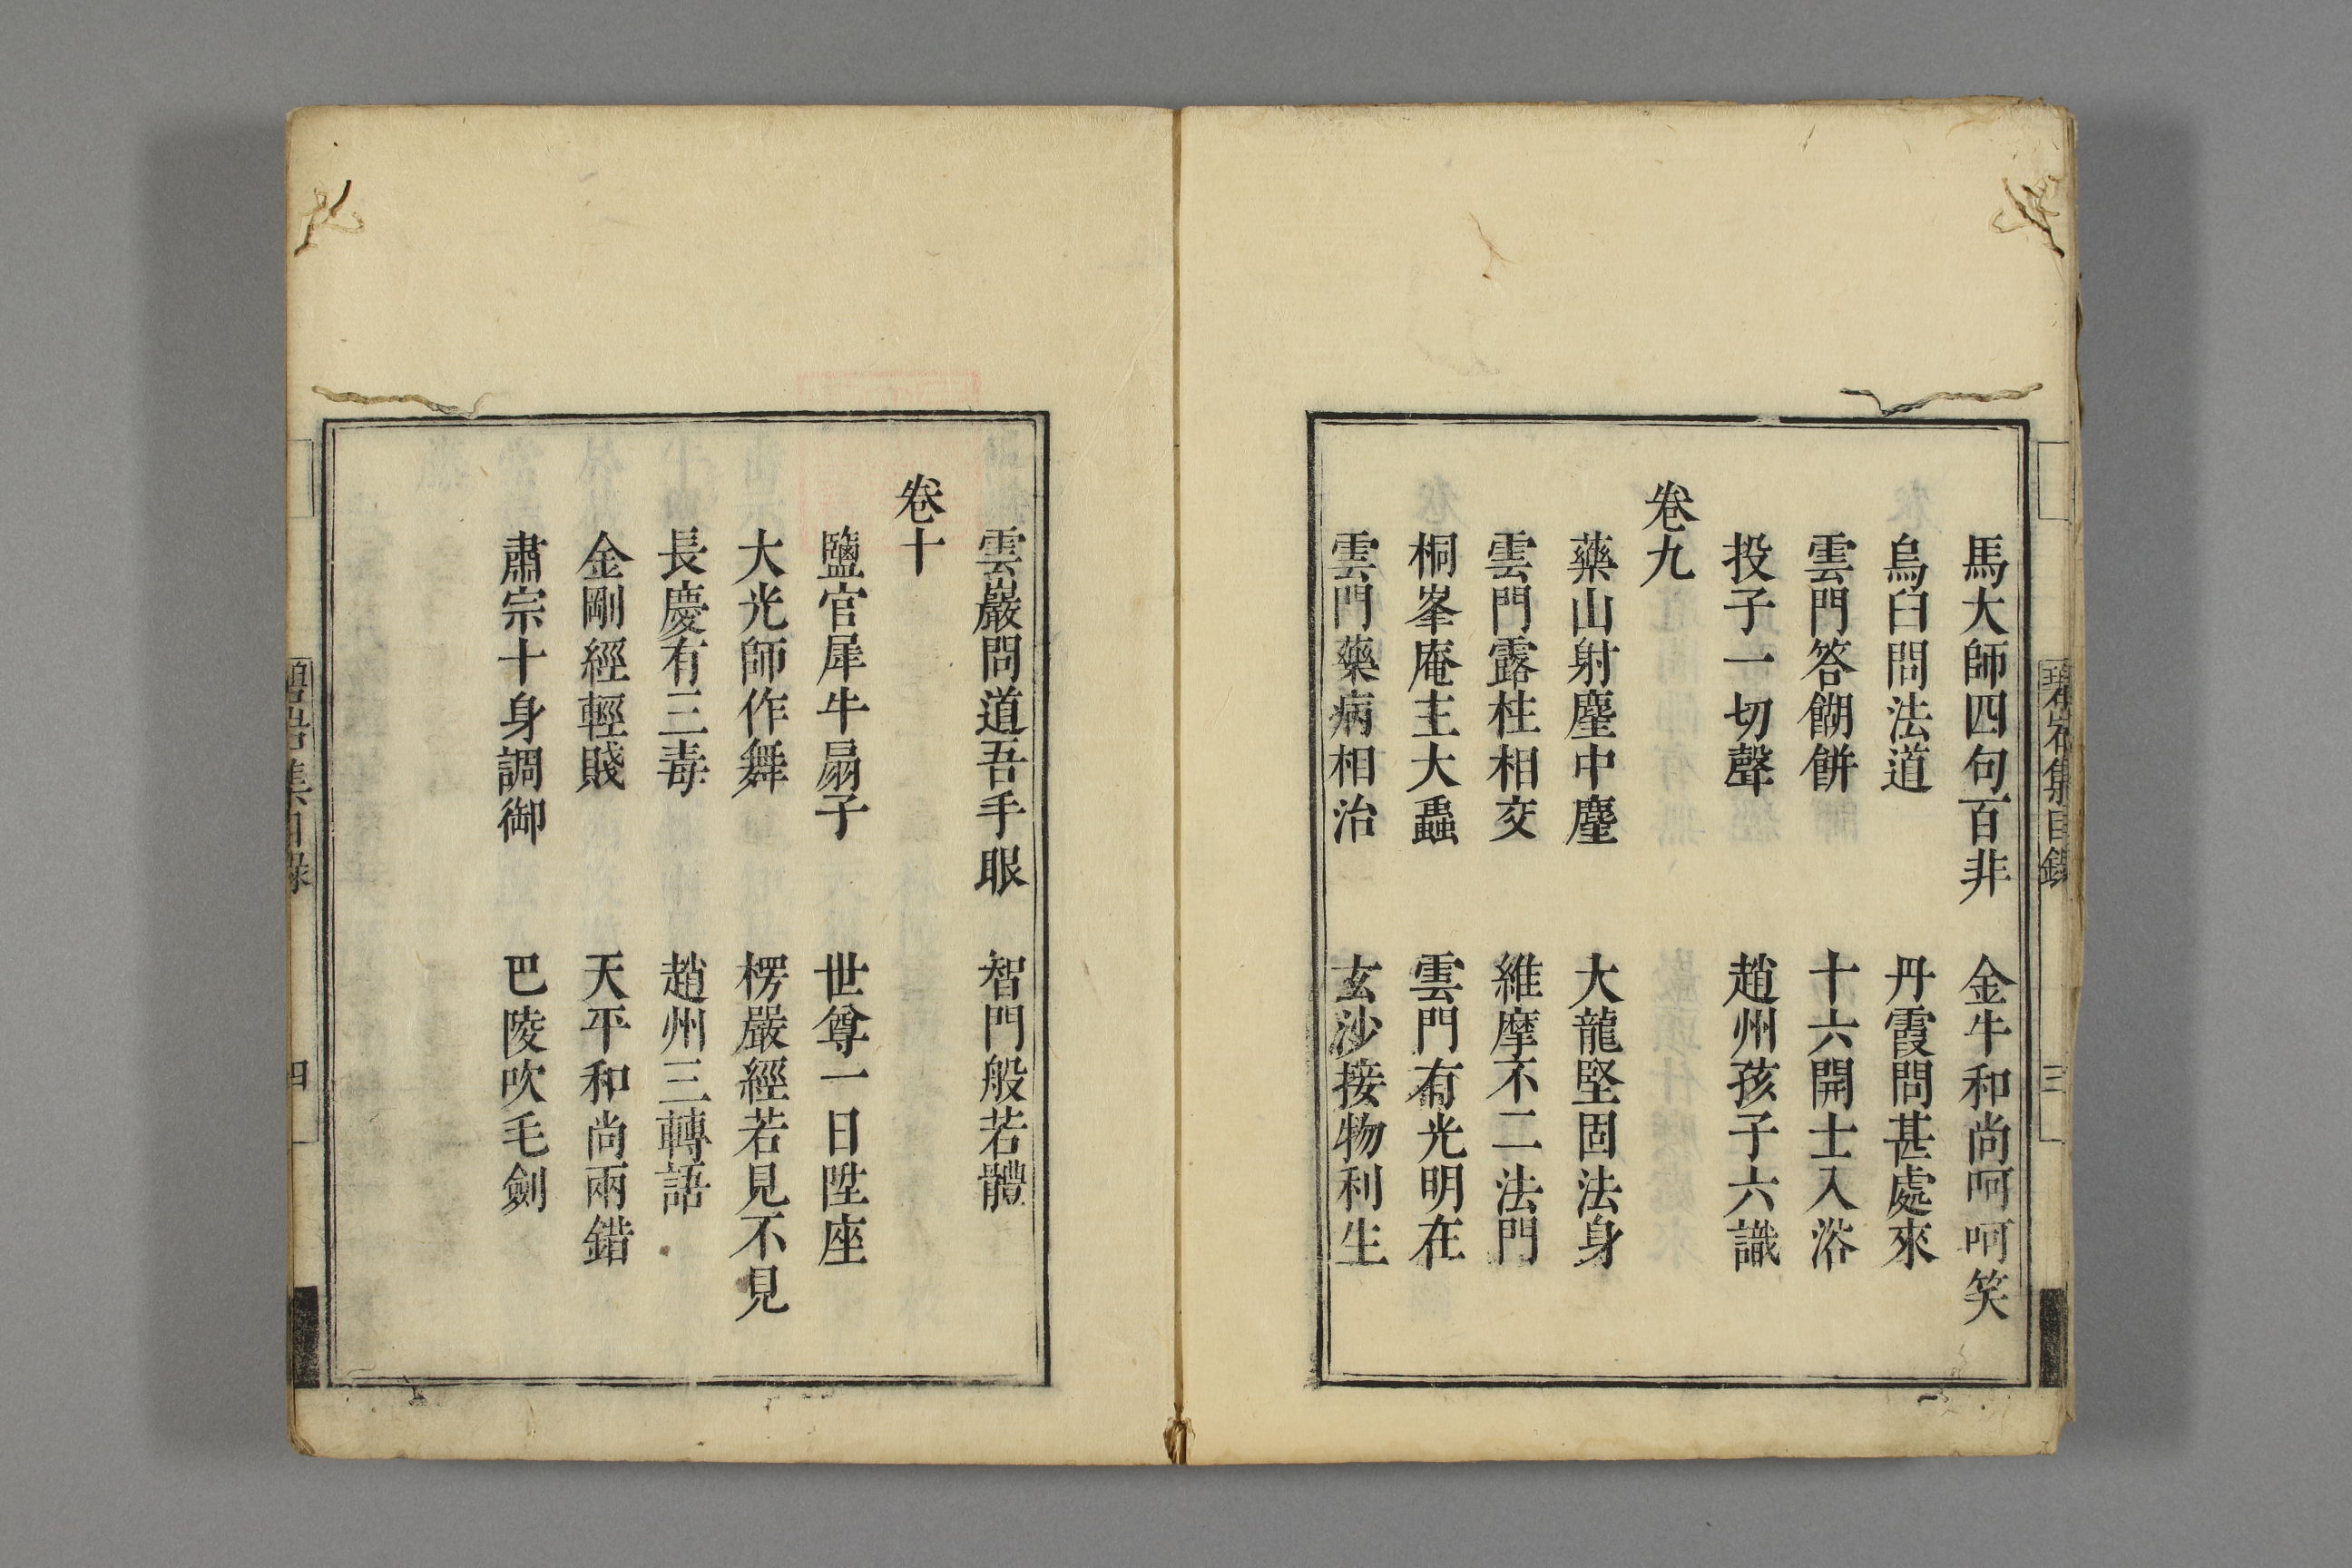 馬大師四句百非　金牛和尚呵呵笑
烏臼問法道　丹霞問甚處來
雲門答餬餅　十六開士入浴
投子一切聲　趙州孩子六識
卷九
藥山射麈中麈　大龍堅固法身
雲門露柱相交　維摩不二法門
桐峯庵主大蟲　雲門有光明在
雲門藥病相治　玄沙接物利生
雲巖問道吾手眼　智門般若體
卷十
鹽官犀牛扇子　世尊一日陞座
大光師作舞　楞嚴經若見不見
長慶有三毒　趙州三轉語
金剛經輕賤　天平和尚兩錯
肅宗十身調御　巴陵吹毛劍
碧岩集目錄
三
四